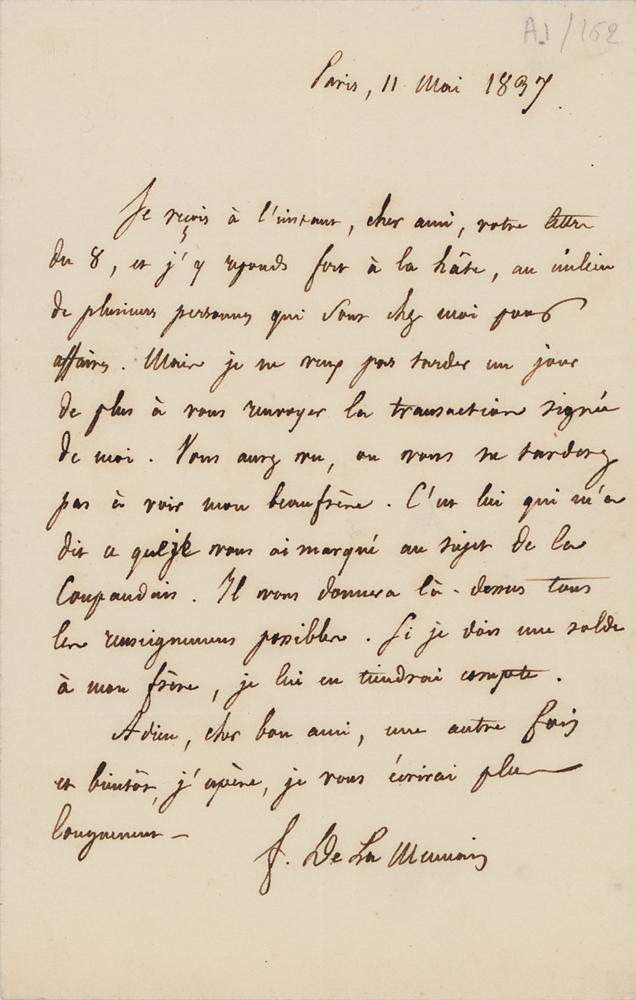 AJ/162
Paris, 11 Mai 1837.
Je reçois à l'instant, cher ami, votre lettre
du 8, et j'y réponds fort à la hâte, au milieu
de plusieurs personnes qui sont chez moi pour
affaires. Mais je ne veux pas tarder un jour
de plus à vous renvoyer la transaction signée
de moi. Vous aurez vu, ou vous ne tarderez
pas à voir mon beaufrère. C'est lui qui m'a
dit ce que je vous ai marqué au sujet de la
Coupaudais. Il vous donnera là-dessus tous
les renseignemens possibles. Si je dois une solde
à mon frère, je lui en tiendrai compte.
Adieu, cher bon ami, une autre fois
et bientôt, j'espère, je vous écrirai plus
longuement –
f. De La Mennais